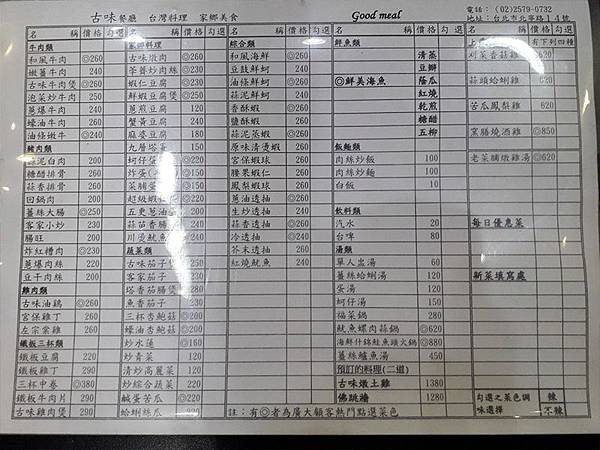 古味餐廳 台灣料理 家鄉美食 Good meal
電話：(02)2579-0732
地址：台北市北寧路14號
名稱 價格 勾選
牛肉類
和風牛肉 ◎260
嫩薑牛肉 240
古味牛肉煲 ◎260
泡菜炒牛肉 250
蔥爆牛肉 240
蠔油牛肉 240
油條嫩牛 ◎240
豬肉類
蒜泥白肉 200
糖醋排骨 260
蒜香排骨 260
回鍋肉 200
薑絲大腸 ◎250
客家小炒 230
腸旺 200
炸紅糟肉 ◎230
蔥爆肉絲 220
豆干肉絲 220
雞肉類
古味油鷄 ◎260
宮保雞丁 260
左宗棠雞 260
鐵板三杯類
鐵板豆腐 220
鐵板雞丁 290
三杯中卷 ◎380
鐵板牛肉片 290
古味雞肉煲 290
家鄉料理
古味燉肉 ◎260
苓薺炒肉絲 ◎230
蝦仁豆腐 ◎230
鮮蝦豆腐煲 ◎250
蔥煎豆腐 200
蟹黃豆腐 240
麻婆豆腐 180
九層塔
蚵仔蛋
炸蛋
菜脯蛋
超級蝦仁
五更蔥油
蒜苗香腸
川燙魷魚
蔬菜類
古味茄子
客家茄子
塔香茄腸煲
魚香茄子
三杯杏鮑菇 ◎200
蠔油杏鮑菇 ◎200
炒水蓮 ◎160
炒青菜 120
清炒高麗菜 120
炒綜合蔬菜 220
鹹蛋苦瓜 ◎220
蛤蜊絲瓜 ◎220
綜合類
和風海鮮 ◎260
豆鼓鮮蚵 240
油條鮮蚵 ◎250
蒜泥鮮蚵 240
香酥蝦 ◎260
鹽酥蝦 ◎260
蒜泥蒸蝦 ◎260
原味清燙蝦 260
宮保蝦球 260
腰果蝦仁 260
鳳梨蝦球 260
蔥油透抽 ◎260
生炒透抽 260
香蒜透抽 260
冷透抽 ◎240
芥末透抽 ◎240
紅燒魷魚 240
鮮魚類
清蒸
豆瓣
◎鮮美海魚 蔭瓜
紅燒
乾煎
糖醋
五柳
飯麵類
肉絲炒飯 100
肉絲炒麵 100
白飯 10
飲料類
汽水 20
台啤 80
湯類
單人出湯 60
薑絲蛤蜊湯 120
蛋湯 120
蚵仔湯 150
福菜鍋 280
魷魚螺肉蒜鍋 ◎620
海鮮什錦鮭魚頭火鍋 ◎880
薑絲鱸魚湯 450
預訂的料理(二道)
古味燉土雞 1380
佛跳牆 1280
有下列四種
刈菜香菇雞 620
蒜頭蛤蜊雞 620
苦瓜鳳梨雞 620
窯膳燒酒雞 ◎850
老菜脯燉雞湯 ◎620
每日優惠菜
新菜填寫處
勾選之菜色調味選擇 辣 不辣
註：有◎者為廣大顧客熱門點選菜色